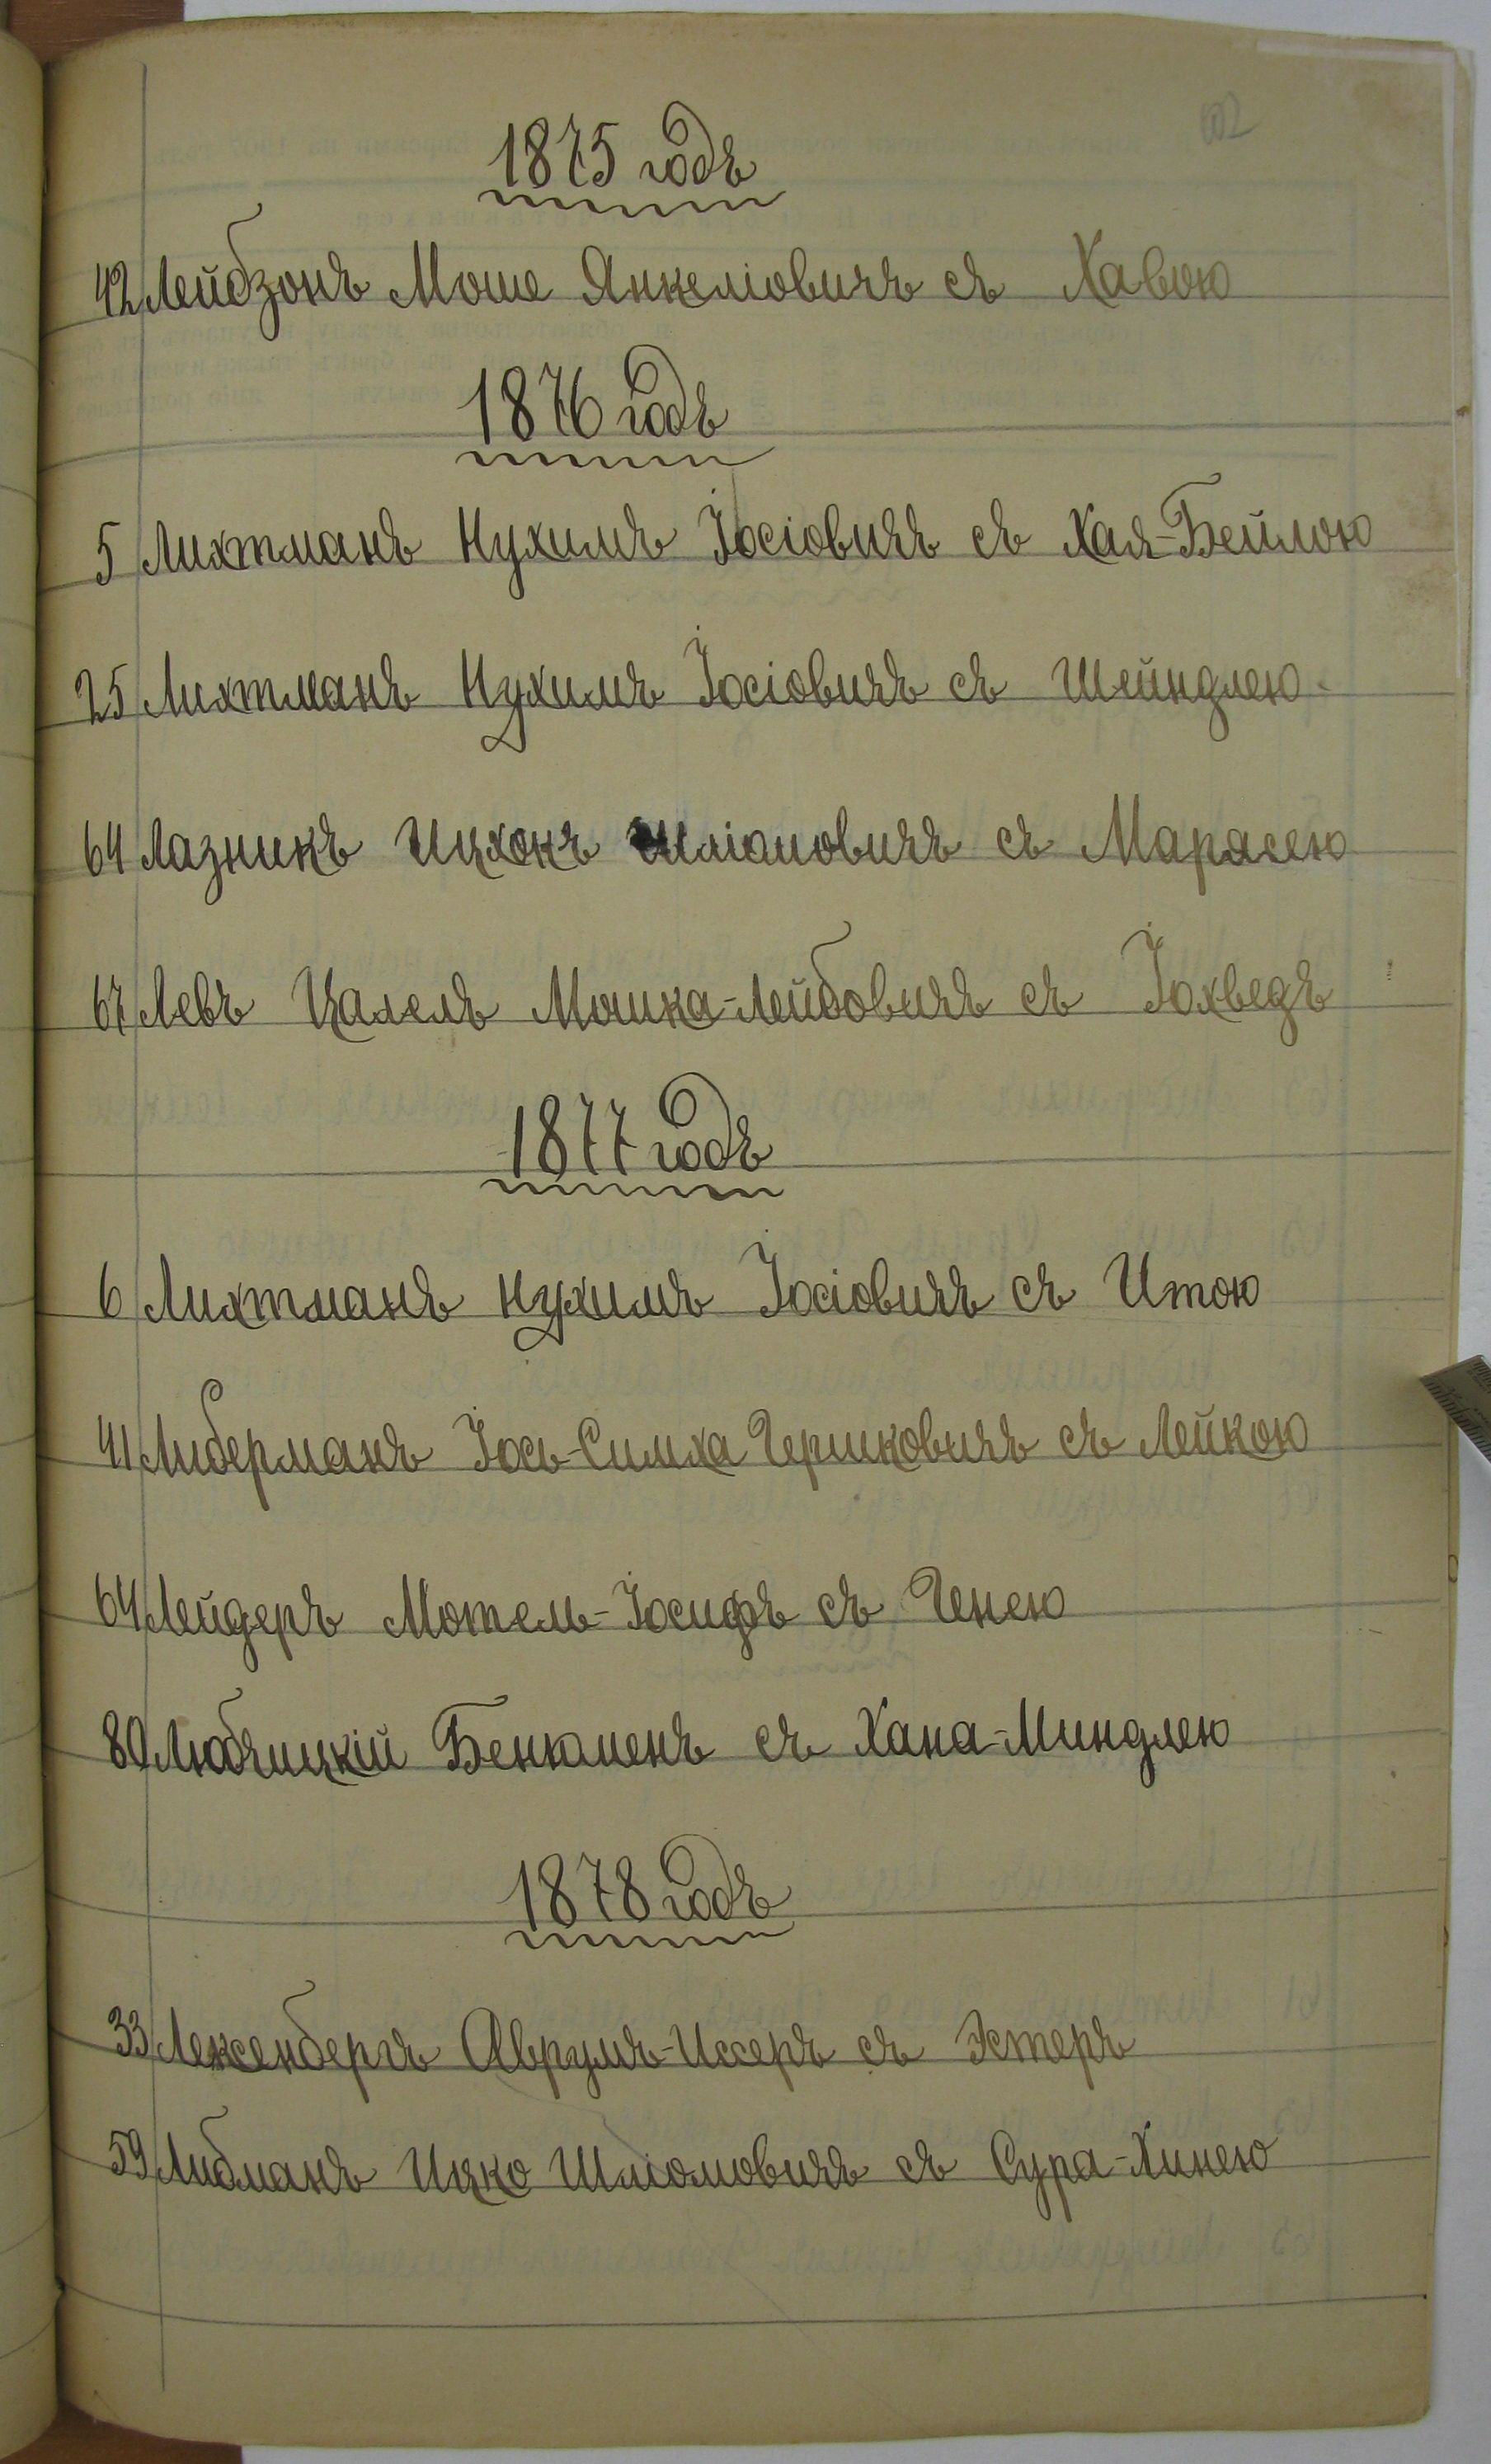 1875 годъ
42 Лейбзонъ Моше Янкеліовичъ съ Хавою
1876 годъ
5 Лихтманъ Нухимъ Іосіовичъ съ Хая-Бейлою
25 Лихтманъ Нухимъ Іосіовичъ съ Шейндлею
64 Лазникъ Ицхокъ съ Марясею
67 Левъ Цалель Мошка-Лейбовичъ съ Іохведъ
1877 годъ
6 Лихтманъ Нухимъ Іосіовичъ съ Итою
41 Либерманъ Іось-Симха Гершковичъ съ Лейкою
64 Лейдеръ Мотель-Іосифъ съ Генею
80 Бенюменъ съ Хана-Миндлею
1878 годъ
33 Лексенбергъ Аврумъ-Иссеръ съ Эстеръ
59 Либманъ Ицко Шліомовичъ съ Сура-Хинею